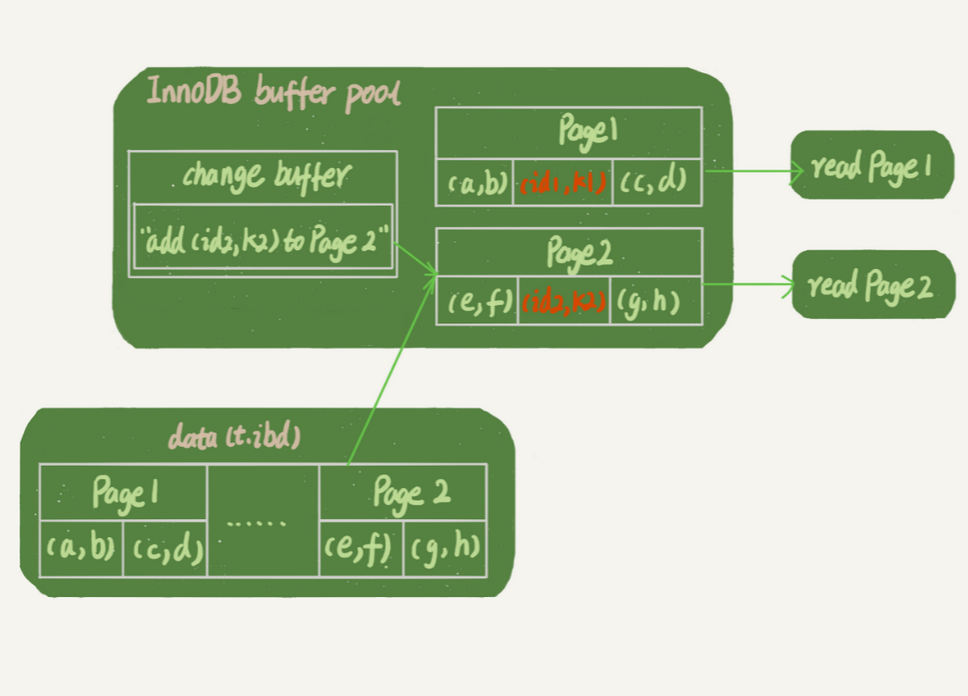 InnoDB buffer pool
change buffer
"add (id2,k2) to Page 2"
Page1
(a,b) (id1,k1) (c,d)
Page2
(e,f) (id2,k2) (g,h)
read Page1
read Page2
data (t.ibd)
Page1
(a,b) (c,d)
......
Page 2
(e,f) (g,h)